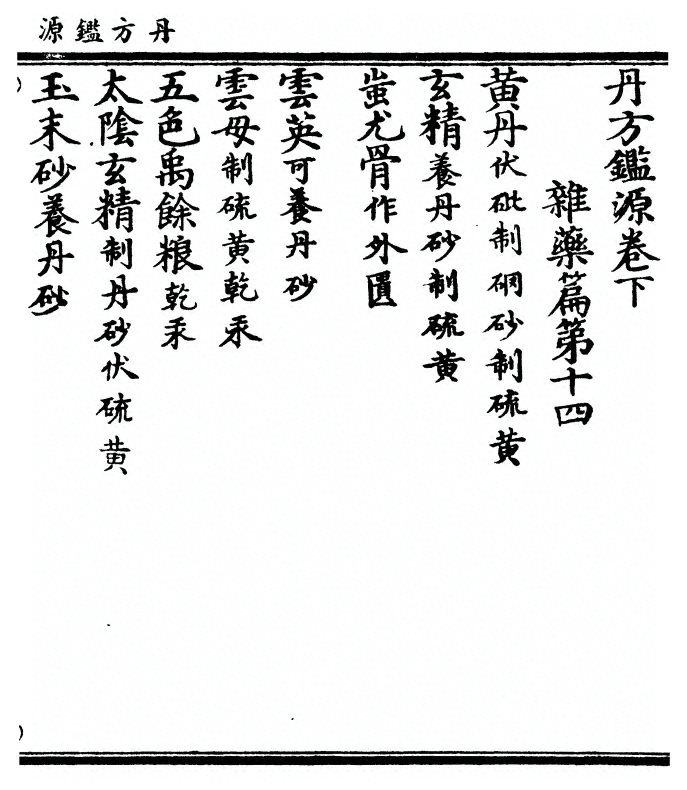 丹方鑑源
丹方鑑源卷下
雜藥篇第十四
黃丹伏砒制硇砂制硫黃
玄精養丹砂制硫黃
蚩尤骨作外匱
雲英可養丹砂
雲母制硫黃乾汞
五色禹餘粮乾汞
太陰玄精制丹砂伏硫黃
玉末砂養丹砂